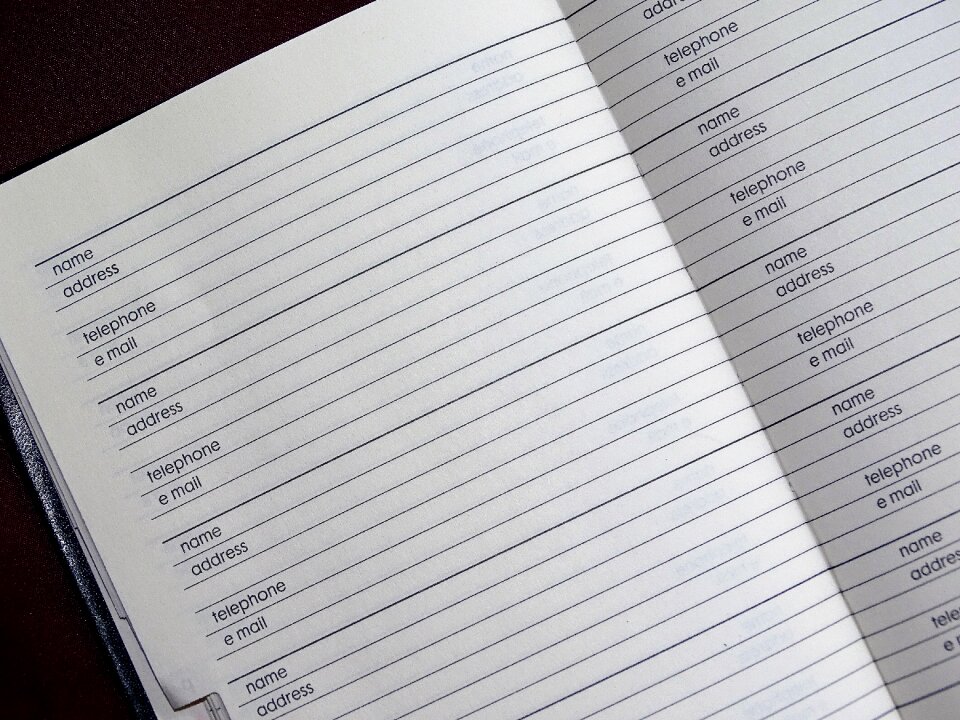 name
address
telephone
e mail
name
address
telephone
e mail
name
address
telephone
e mail
name
address
telephone
e mail
name
address
telephone
e mail
name
address
telephone
e mail
name
address
telephone
e mail
name